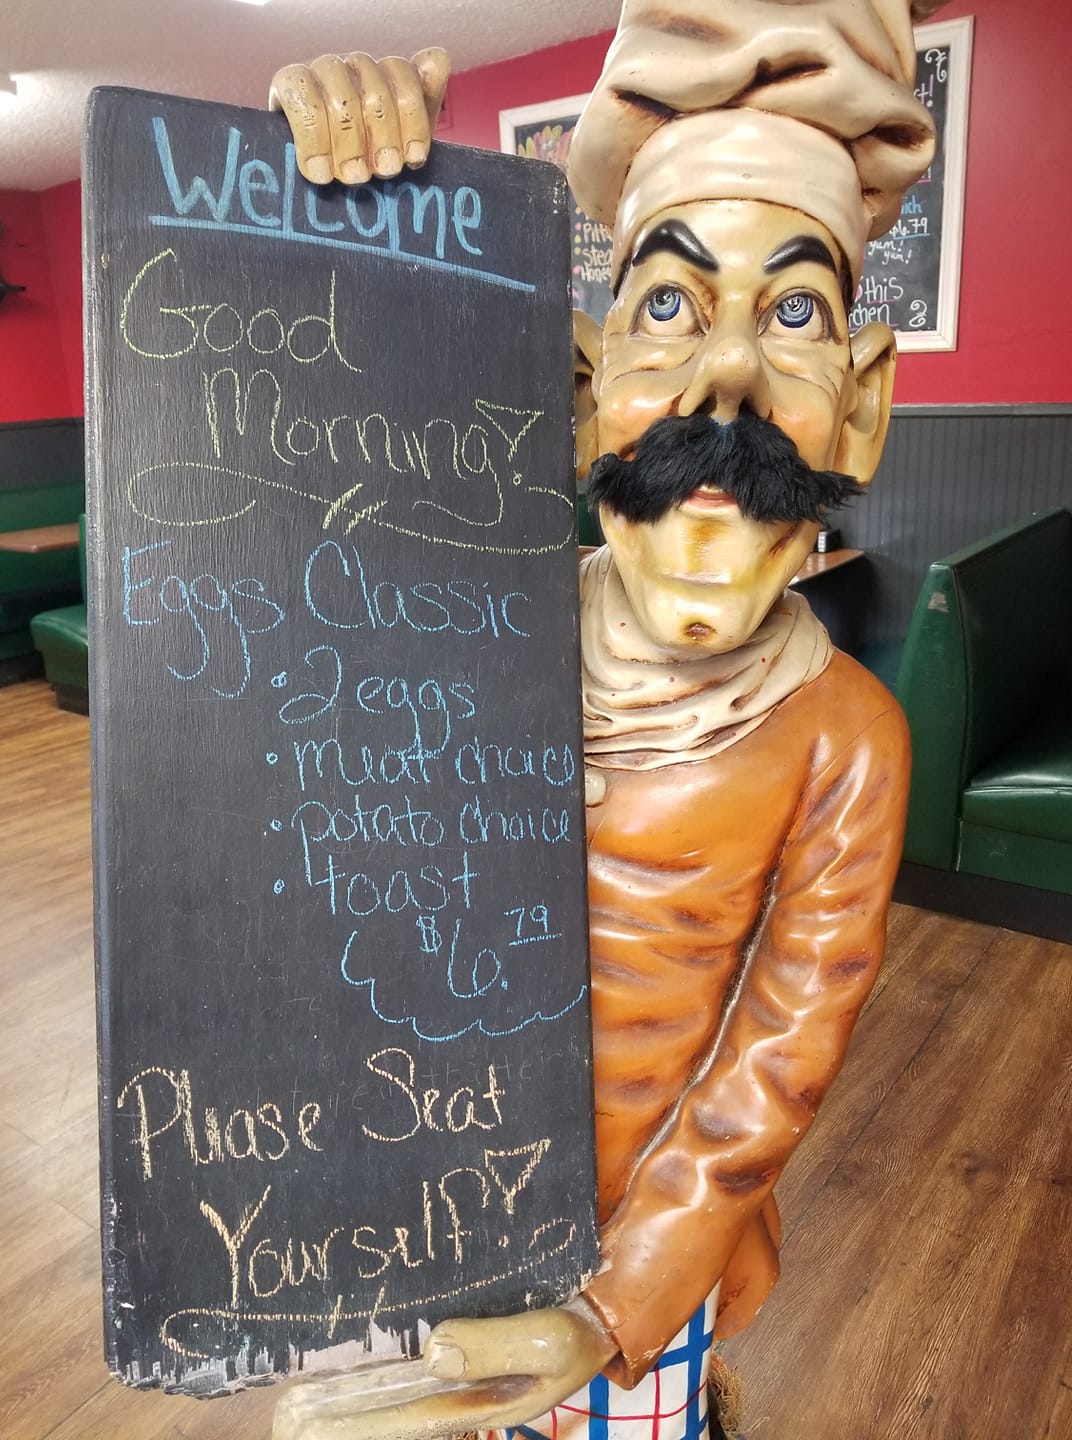 Welcome
Good
Morning!
Eggs Classic
• 2 eggs
• meat choice
• potato choice
• toast
$6.79
Please Seat
Yourself!
t!
$6.79
yum!
yum!
this